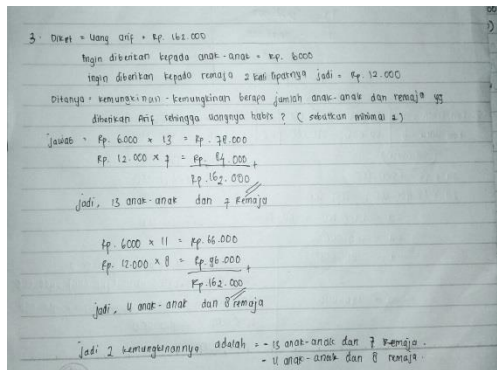 3. Diket = Uang Arif = Rp. 162.000
Ingin diberikan kepada anak-anak = Rp. 6000
ingin diberikan kepada remaja 2 kali lipatnya jadi = Rp. 12.000
Ditanya = kemungkinan-kemungkinan berapa jumlah anak-anak dan remaja yg
diberikan Arif sehingga uangnya habis ? ( sebutkan minimal 2 )
jawab = Rp. 6.000 x 13 = Rp. 78.000
Rp. 12.000 x 7 = Rp. 84.000 +
Rp. 162.000
jadi, 13 anak-anak dan 7 remaja
Rp. 6000 x 11 = Rp. 66.000
Rp. 12.000 x 8 = Rp. 96.000 +
Rp. 162.000
jadi, 11 anak-anak dan 8 remaja
jadi 2 kemungkinannya adalah = - 13 anak-anak dan 7 remaja.
- 11 anak-anak dan 8 remaja.